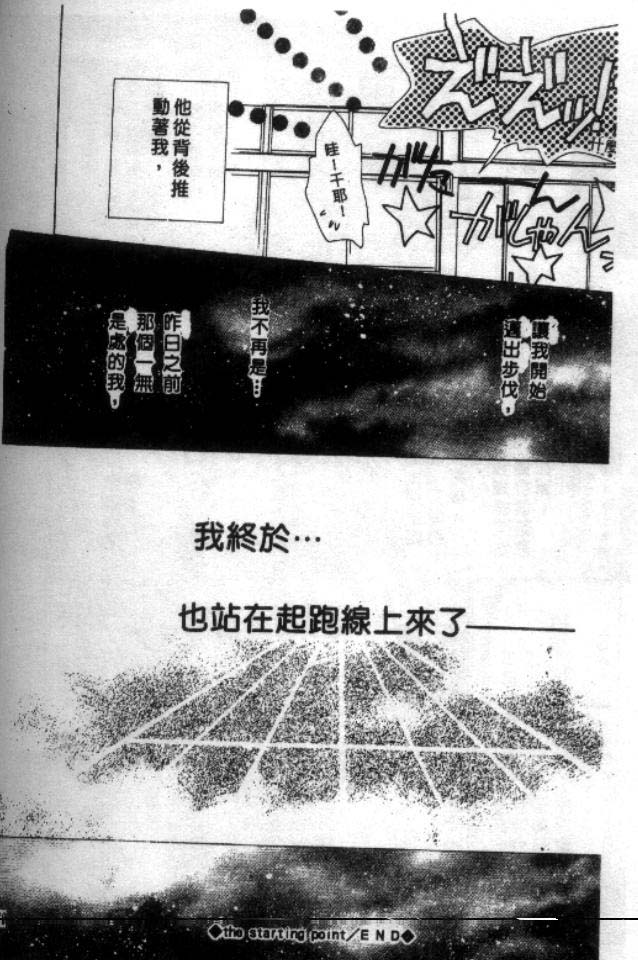 什麼
ずずッ!
ガタ
がしゃーん
哇ー千耶ー!
他從背後推
動著我，
讓我開始
邁出步伐，
我不再是…
昨日之前
那個一無
是處的我，
我終於…
也站在起跑線上來了——
◆the starting point／END◆